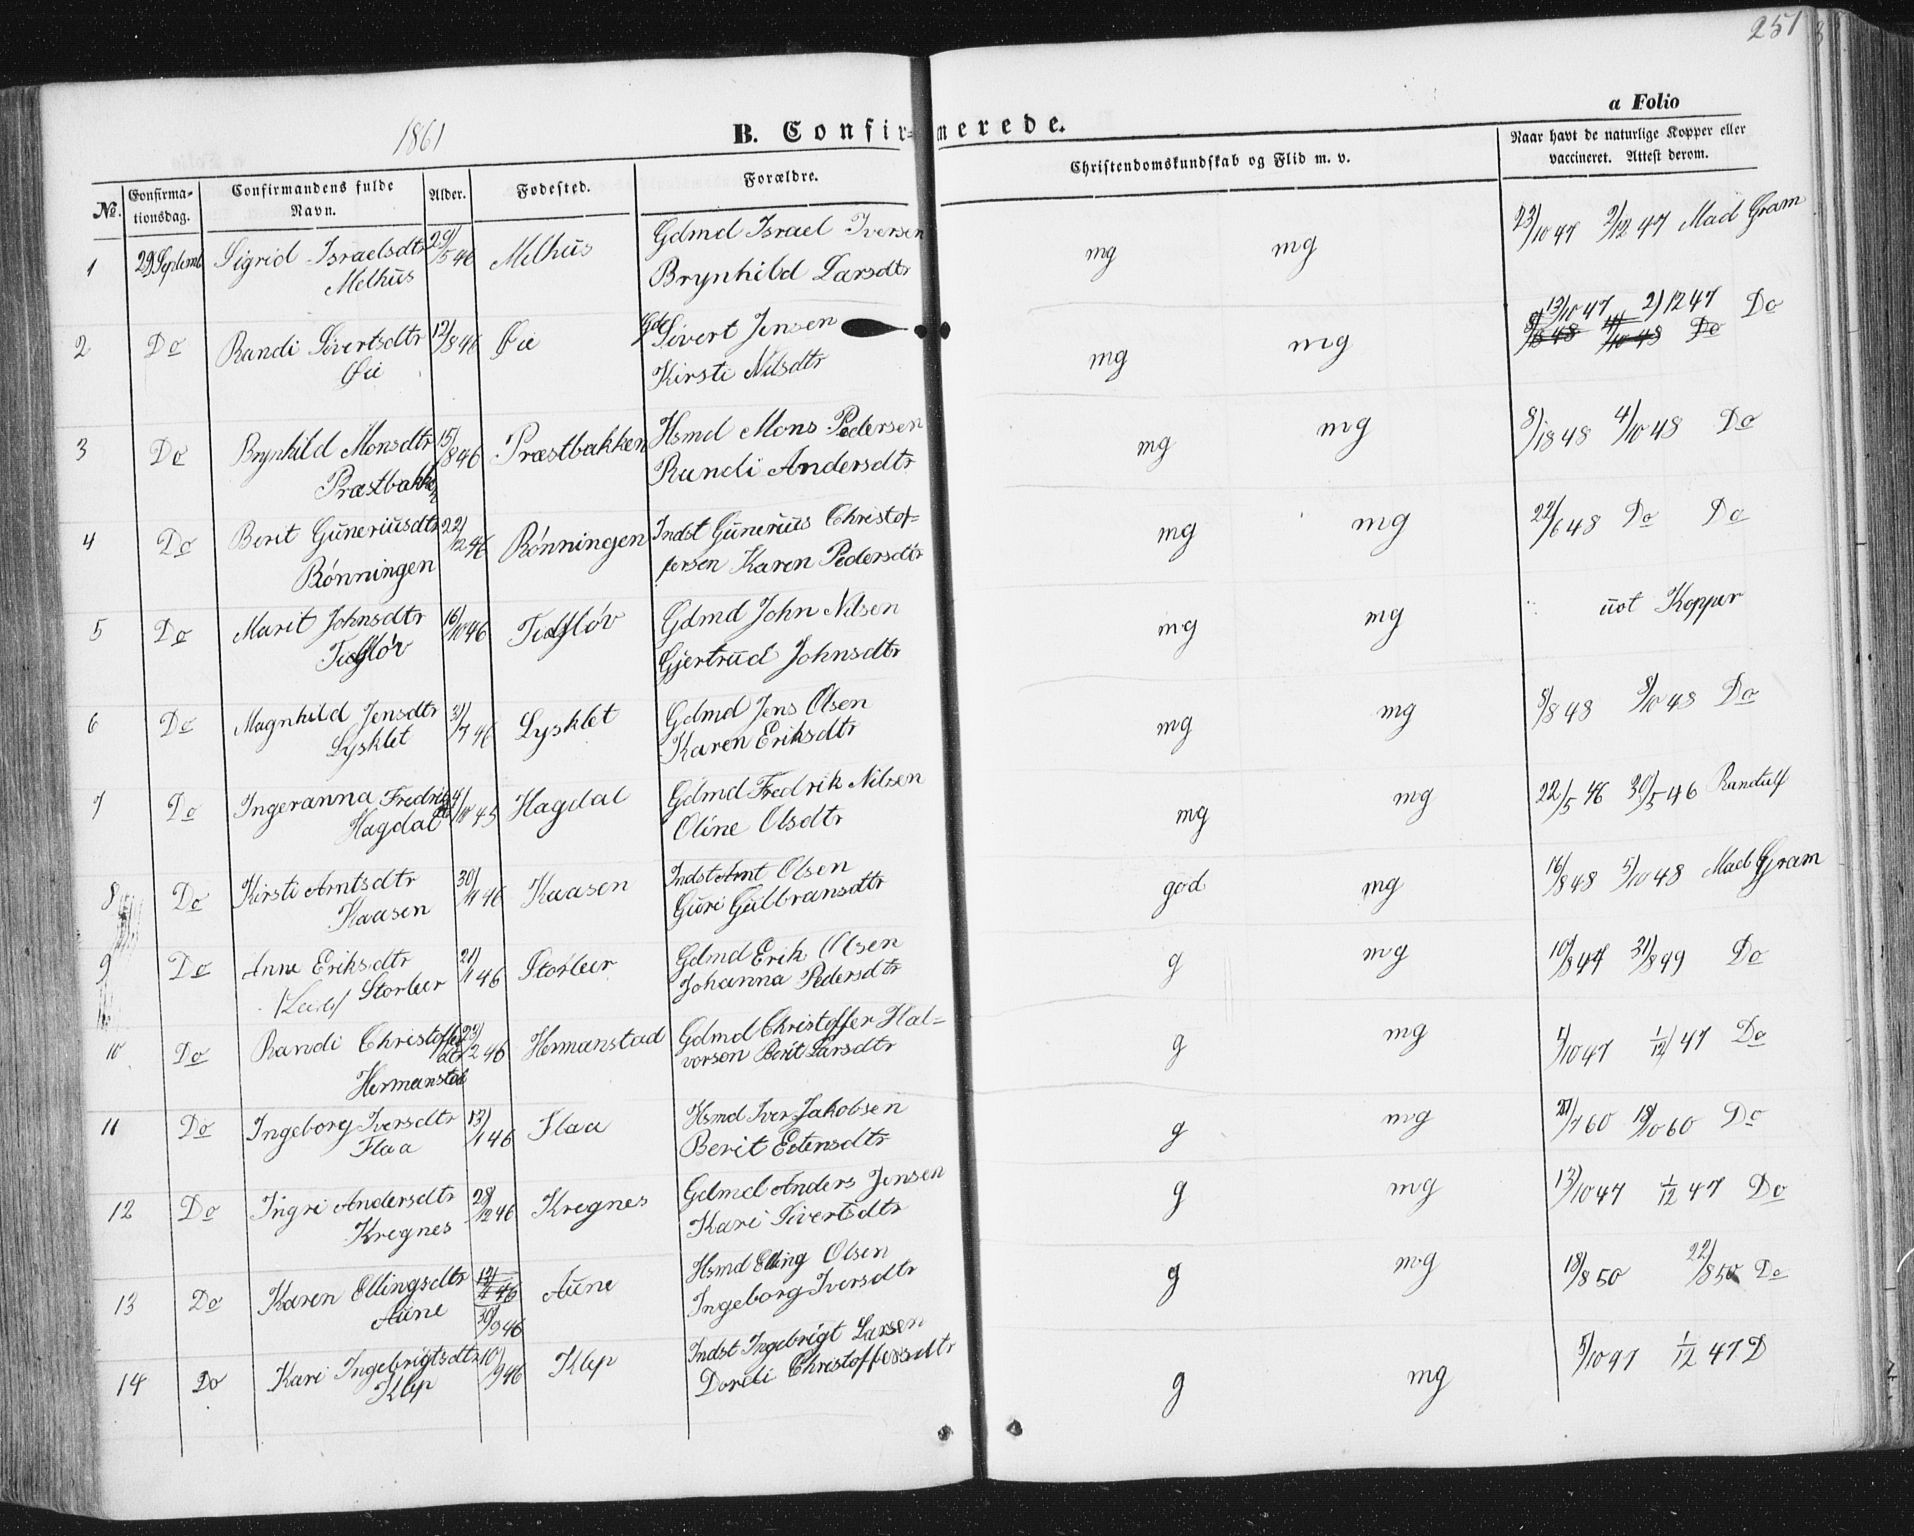 251
1861
B. Confirmerede.
a Folio
No.
Confirma-
tionsdag.
Confirmandens fulde
Navn.
Alder.
Fødested.
Forældre.
Christendomskundskab og Flid m. v.
Naar havt de naturlige Kopper eller
vaccineret. Attest derom.
1 29 Septemb Sigrid Israelsdtr 29/5 46 Melhus Gdmd Israel Iversen mg mg 23/10 47 2/12 47 Mad Gram
Melhus Brynhild Larsdtr
2 Do Randi Sivertsdtr 12/8 46 Øie Gd Sivert Jensen mg mg 13/10 47 2/12 47 Do
Øie Kirsti Nilsdtr
3 Do Brynhild Monsdtr 15/8 46 Præstbakken Hsmd Mons Pedersen mg mg 8/18 48 4/10 48 Do
Præstbakken Randi Andersdtr
4 Do Berit Guneriusdtr 22/12 46 Rønningen Indst Gunerius Christof= mg mg 22/6 48 Do Do
Rønningen fersen Karen Pedersdtr
5 Do Marit Johnsdtr 16/10 46 Gdmd John Nilsen mg mg Kopper
Gjertrud Johnsdtr
6 Do Magnhild Jensdtr 31/7 46 Lysklet Gdmd Jens Olsen mg mg 8/8 48 8/10 48 Do
Lysklet Karen Eriksdtr
7 Do Ingeranna Fredriksdtr 4/10 45 Hagdal Gdmd Fredrik Nilsen mg mg 22/5 46 30/5 46 Randulf
Hagdal Oline Olsdtr
8 Do Kirsti Arntsdtr 30/4 46 Kaasen Indst Arnt Olsen god mg 16/8 48 5/10 48 Mad Gram
Kaasen Guri Gulbransdtr
9 Do Anne Eriksdtr 21/1 46 Storleer Gdmd Erik Olsen g mg 10/8 47 31/8 49 Do
Storleer Johanna Pedersdtr
10 Do Randi Christoffersdtr 23/12 46 Hermanstad Gdmd Christoffer Hal= g mg 1/10 47 1/12 47 Do
Hermanstad vorsen Berit Larsdtr
11 Do Ingeborg Iversdtr 13/1 46 Flaa Hsmd Iver Jakobsen g mg 21/7 60 18/10 60 Do
Flaa Berit Estensdtr
12 Do Ingri Andersdtr 28/12 46 Kregnes Gdmd Anders Jensen g mg 13/10 47 1/12 47 Do
Kregnes Kari Sivertsdtr
13 Do Karen Ellingsdtr 12/4 46 Aune Hsmd Elling Olsen g mg 18/8 50 22/8 50 Do
Aune 30/9 46 Ingeborg Iversdtr
14 Do Kari Ingebrigtsdtr 10/9 46 Klep Indst Ingebrigt Larsen g mg 5/10 47 1/12 47 D
Klep Dordi Christoffersdtr